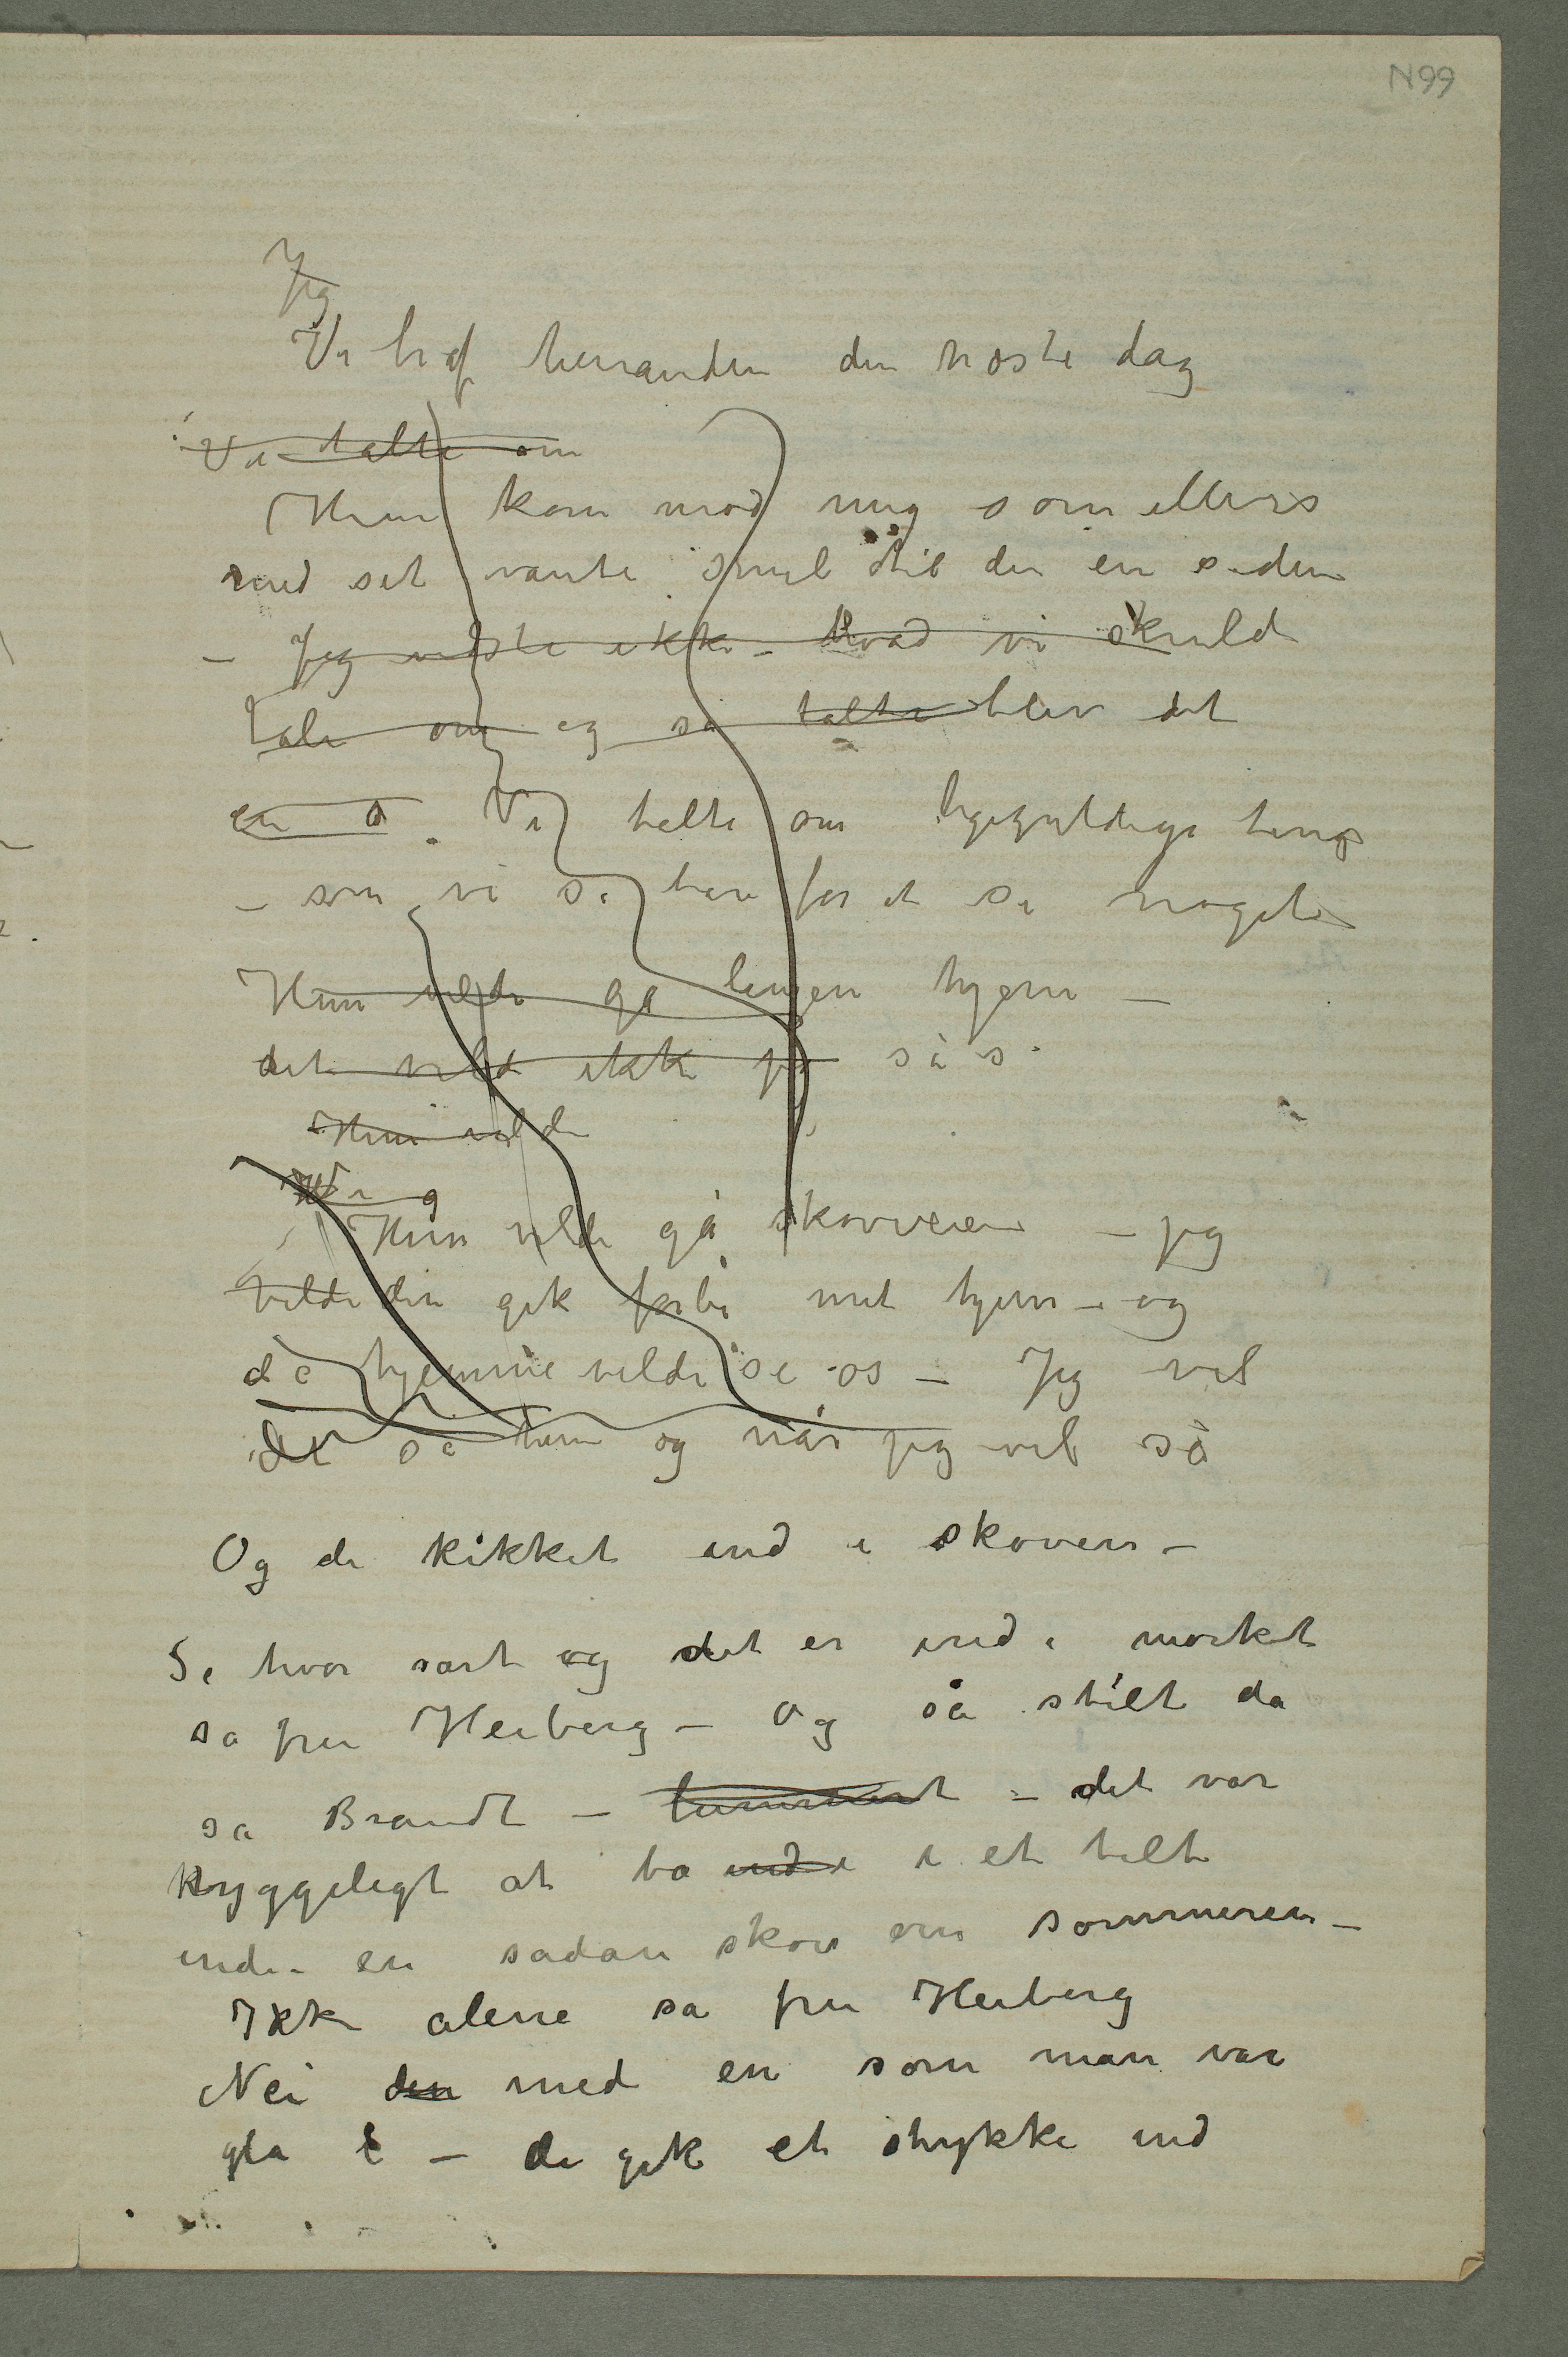 N99
Jeg
Vi traf hverandre den næste dag
Vi talte om
Hun kom mod mig som ellers
med sit vante smil til den en siden
– Jeg vidste ikke – hvad vi skulde
tale om og så talte blev det
en a. Vi talte om ligegyldige ting
– som vi sa bare for at si noget
Hun vilde gå lengen hjem –
det vilde ikke jeg så s
Hun vilde
Vi g
Hun vilde gå skovveien – jeg
vilde den gik forbi mit hjem – og
de hjemme vilde se os – Jeg vil
det sa hun og når jeg vil så
Og de kikket ind i skoven –
Se hvor sort og det er ind i mørket
sa fru Heiberg – Og så stilt da
sa Brandt – – det var
hyggeligt at bo inde i i et telt
inde i en sådan skov om sommeren –
Ikke alene sa fru Heiberg
Nei den med en som man var
gla i – de gik et stykke ind